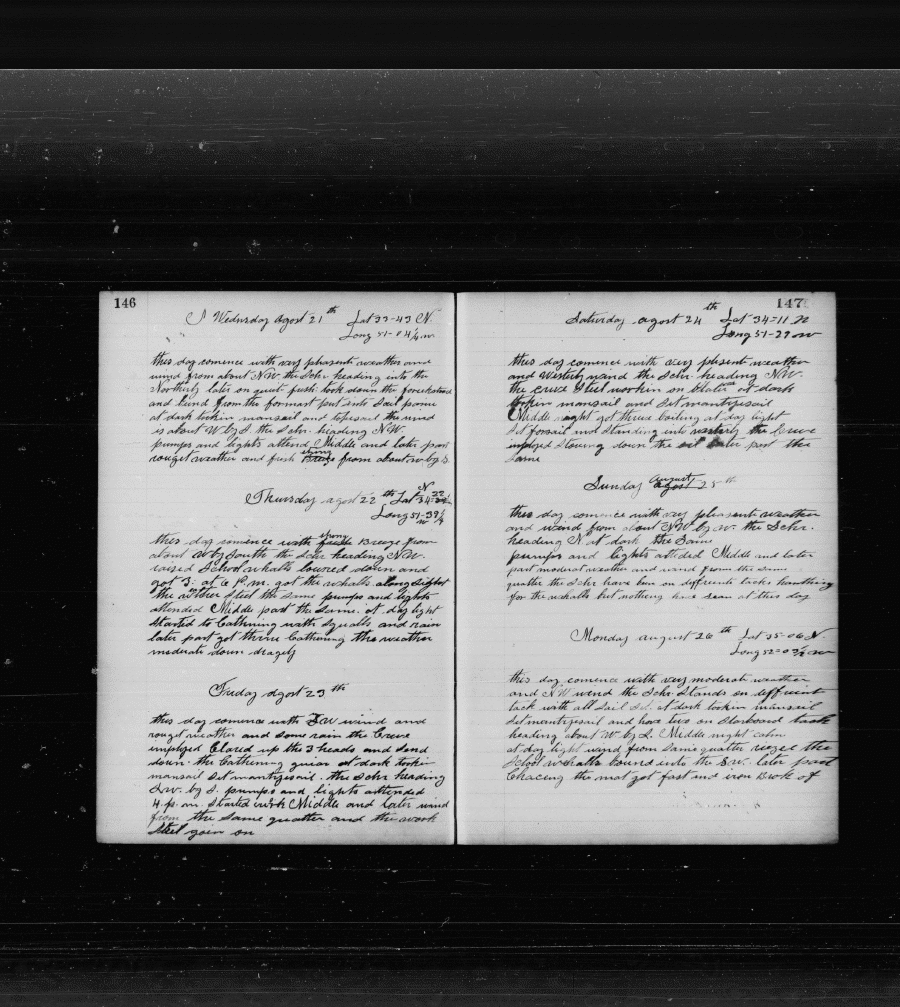 146
Wednesday agost 21th Lat 33-43 N.
Long 51-04 1/4 w
this day comence with very pleasent weather and
wind from about N.W. the Schr heading into the
Northerly later on quit fresh took down the forestaysail
and bend from the formast put into Sail
at dark tookin mansail and topesail the wind
is about W by S. the Schr. heading N.W.
pumps and lights attend Middle and later part
rouget weather and fresh strong Breeze from about w by S.
Thursday agost 22th Lat 34-22 N
Long 51-39 1/4 w
this day comence with strong Breeze from
about W by South the Schr heading N.W.
raised School whalls lowred down and
got 3. at 6 P.m. got the whalls along sight
the wither Steel the same pumps and lights
attended Middle part the same. at day light
Started to Cuthening with Squalls and rain
later part got threw Cuthening the weather
moderate down
Friday agost 23th
this day comence with SW wind and
rouget weather and some rain the Crewe
imployed Clared up the 3 heads and send
down the Cuthening at dark tookin
mansail Set mantrysail. the Schr heading
S.w. by S. pumps and lights attended
4. p.m. Started work Middle and later wind
from the same quatter and the work
Steel goin on
147
Saturday agost 24th Lat 34-11 N
Long 51-29 w
this day comence with very plesent weather
and Westerly wind the Schr heading N.W.
the crewe Steel workin on at dark
tookin mansail and Set mantrysail
Middle night got threw boiling at day light
Set forsail and Standing into westerly the Crewe
imployed Stowing down the oil later part the
Same
Sunday august 25th
this day comence with very pleasent weather
and wind from about NW by W. the Schr.
heading N. at dark the Same
pumps and lights attended Middle and later
part moderat weather and wind from the same
quatter the Schr have been on diffrente tacks
for the whalls but nothing have sean at this day
Monday august 26th Lat 35-06 N
Long 52-03 1/2 w
this day comence with very moderate weather
and N.W wind the Schr. Stands on diffrent
tack with all Sail Set. at dark tookin mansail
Set mantrysail and have two on Starboard tack
heading about W by S. Middle night calm
at day light wind from same quatter reezed the
School whalls bound into the S.w. later part
Chacing the mat got fast and iron Brok of